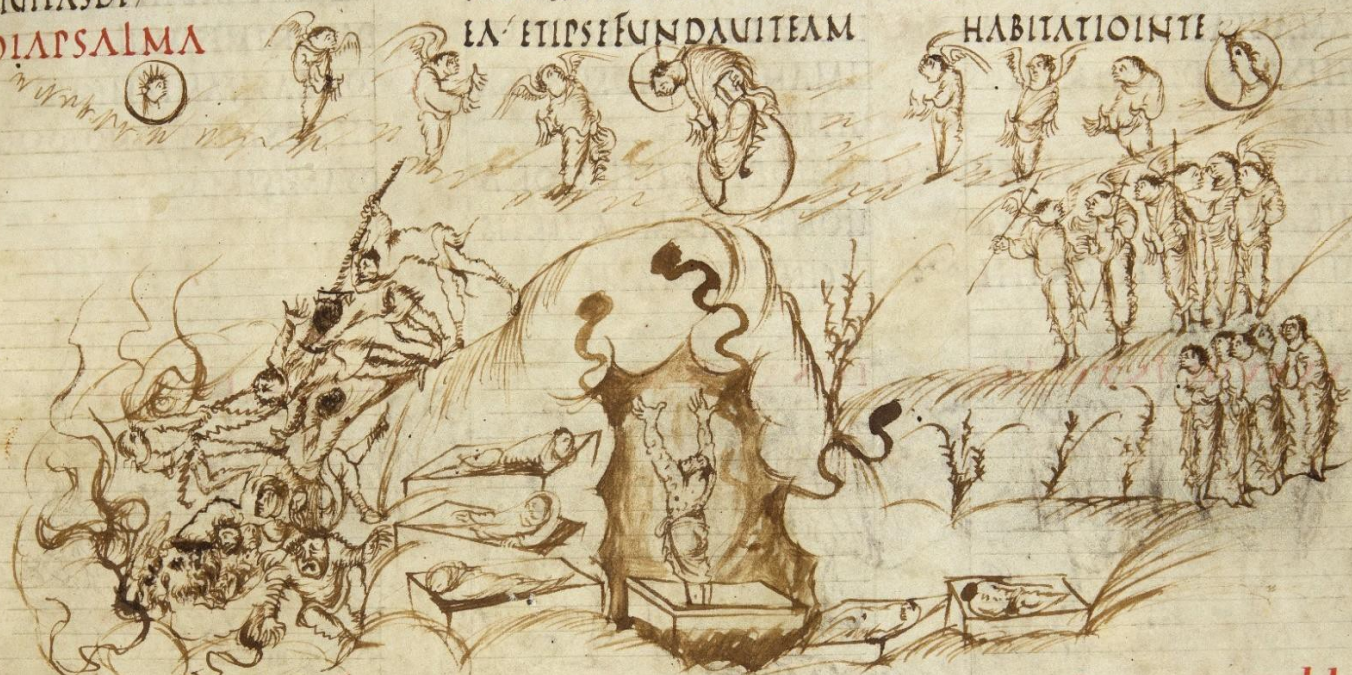 DIAPSALMA
EA· ETIPSEFUNDAUITEAM
HABITATIOINTE